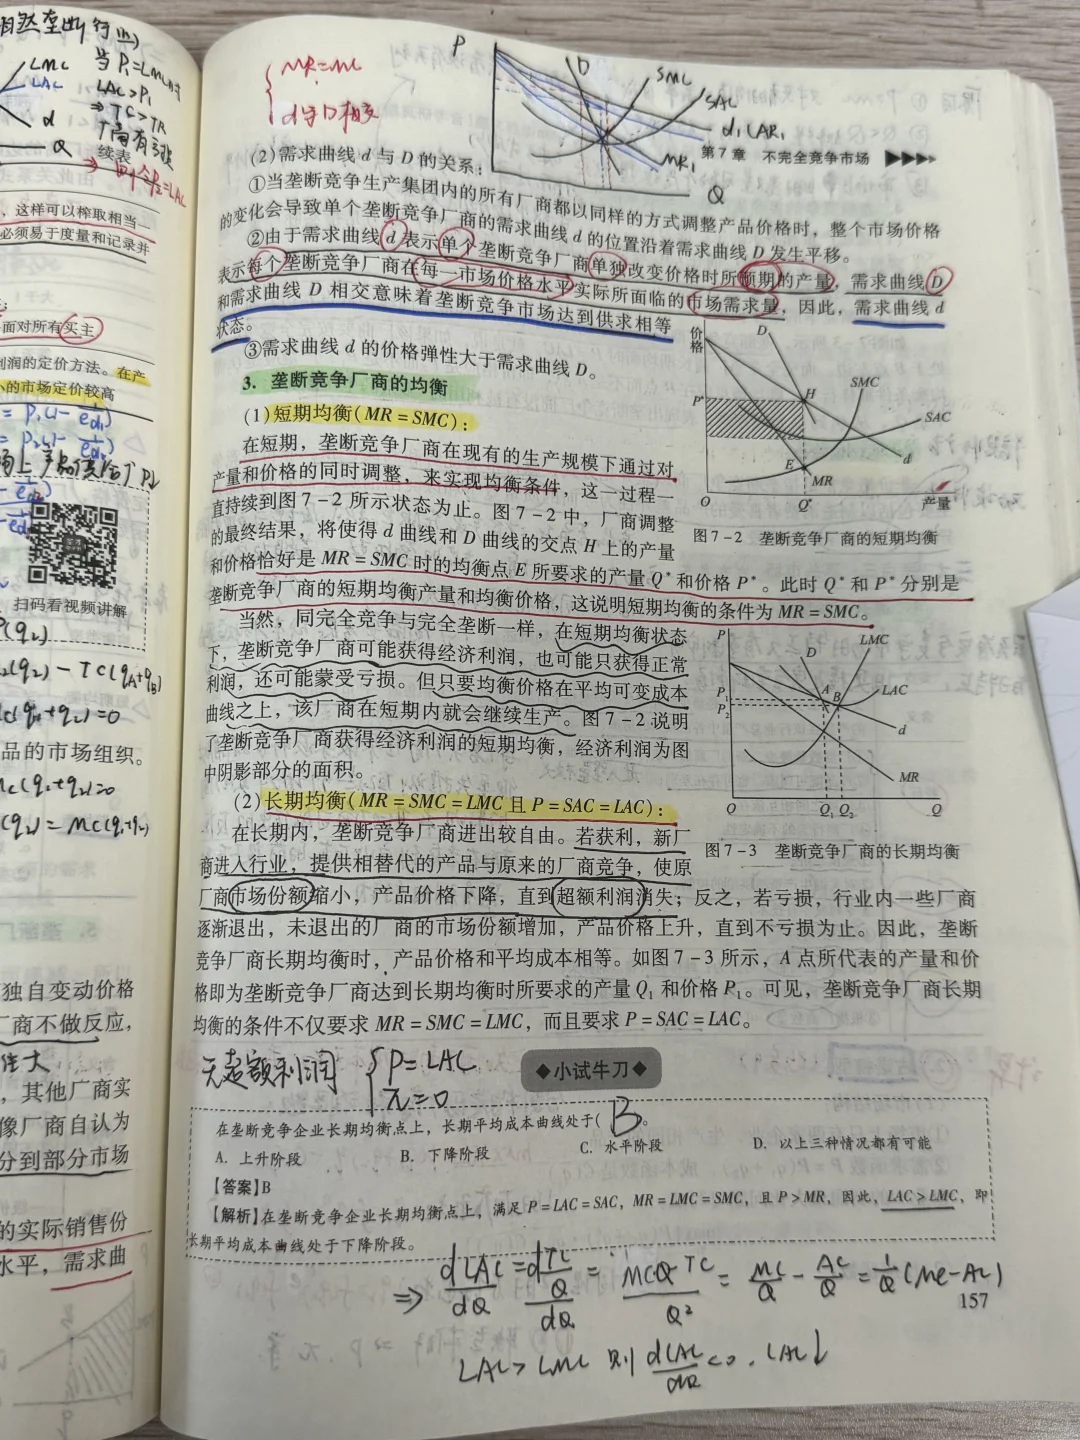 自然垄断行业)
LMC
LAC
d
Q
LAC>P₁
⇒TC>TR
续表
,这样可以榨取相当一
必须易于度量和记录并
面对所有买主
利润的定价方法。在产
小的市场定价较高
扫码看视频讲解
P(q₂)
MC(q₁+q₂)=0
品的市场组织。
MC(q₁+q₂)=0
(q₂)=MC(q₁+q₂)
独自变动价格
厂商不做反应,
性大
,其他厂商实
像厂商自认为
分到部分市场
的实际销售份
水平,需求曲
MR=MC
d与D相交
P
D
SMC
SAC
d₁(AR₁
MR₁
Q
第7章 不完全竞争市场
(2)需求曲线 d 与 D 的关系:
①当垄断竞争生产集团内的所有厂商都以同样的方式调整产品价格时,整个市场价格
的变化会导致单个垄断竞争厂商的需求曲线 d 的位置沿着需求曲线 D 发生平移。
②由于需求曲线 d 表示单个垄断竞争厂商单独改变价格时所预期的产量,需求曲线 D
表示每个垄断竞争厂商在每一市场价格水平实际所面临的市场需求量,因此,需求曲线 d
和需求曲线 D 相交意味着垄断竞争市场达到供求相等
状态。
③需求曲线 d 的价格弹性大于需求曲线 D。
3. 垄断竞争厂商的均衡
(1)短期均衡(MR=SMC):
在短期,垄断竞争厂商在现有的生产规模下通过对
产量和价格的同时调整,来实现均衡条件,这一过程一
直持续到图 7-2 所示状态为止。图 7-2 中,厂商调整
的最终结果,将使得 d 曲线和 D 曲线的交点 H 上的产量
和价格恰好是 MR=SMC 时的均衡点 E 所要求的产量 Q* 和价格 P*。此时 Q* 和 P* 分别是
垄断竞争厂商的短期均衡产量和均衡价格,这说明短期均衡的条件为 MR=SMC。
价格
D
SMC
H
P*
SAC
d
E
MR
O
Q*
产量
图 7-2 垄断竞争厂商的短期均衡
当然,同完全竞争与完全垄断一样,在短期均衡状态
下,垄断竞争厂商可能获得经济利润,也可能只获得正常
利润,还可能蒙受亏损。但只要均衡价格在平均可变成本
曲线之上,该厂商在短期内就会继续生产。图 7-2 说明
了垄断竞争厂商获得经济利润的短期均衡,经济利润为图
中阴影部分的面积。
P
LMC
D
LAC
P₁
P₂
A
B
d
MR
O
Q₁
Q₂
Q
图 7-3 垄断竞争厂商的长期均衡
(2)长期均衡(MR=SMC=LMC 且 P=SAC=LAC):
在长期内,垄断竞争厂商进出较自由。若获利,新厂
商进入行业,提供相替代的产品与原来的厂商竞争,使原
厂商市场份额缩小,产品价格下降,直到超额利润消失;反之,若亏损,行业内一些厂商
逐渐退出,未退出的厂商的市场份额增加,产品价格上升,直到不亏损为止。因此,垄断
竞争厂商长期均衡时,产品价格和平均成本相等。如图 7-3 所示,A 点所代表的产量和价
格即为垄断竞争厂商达到长期均衡时所要求的产量 Q₁ 和价格 P₁。可见,垄断竞争厂商长期
均衡的条件不仅要求 MR=SMC=LMC,而且要求 P=SAC=LAC。
无超额利润
P=LAC
π=0
◆小试牛刀◆
在垄断竞争企业长期均衡点上,长期平均成本曲线处于( B 。
A. 上升阶段 B. 下降阶段 C. 水平阶段 D. 以上三种情况都有可能
【答案】B
【解析】在垄断竞争企业长期均衡点上,满足 P=LAC=SAC,MR=LMC=SMC,且 P>MR,因此,LAC>LMC,即
长期平均成本曲线处于下降阶段。
⇒ dLAC/dQ = d(TC/Q)/dQ = (MCQ-TC)/Q² = MC/Q - AC/Q = 1/Q (MC-AC)
157
LAC>LMC 则 dLAC/dQ <0. LAC↓